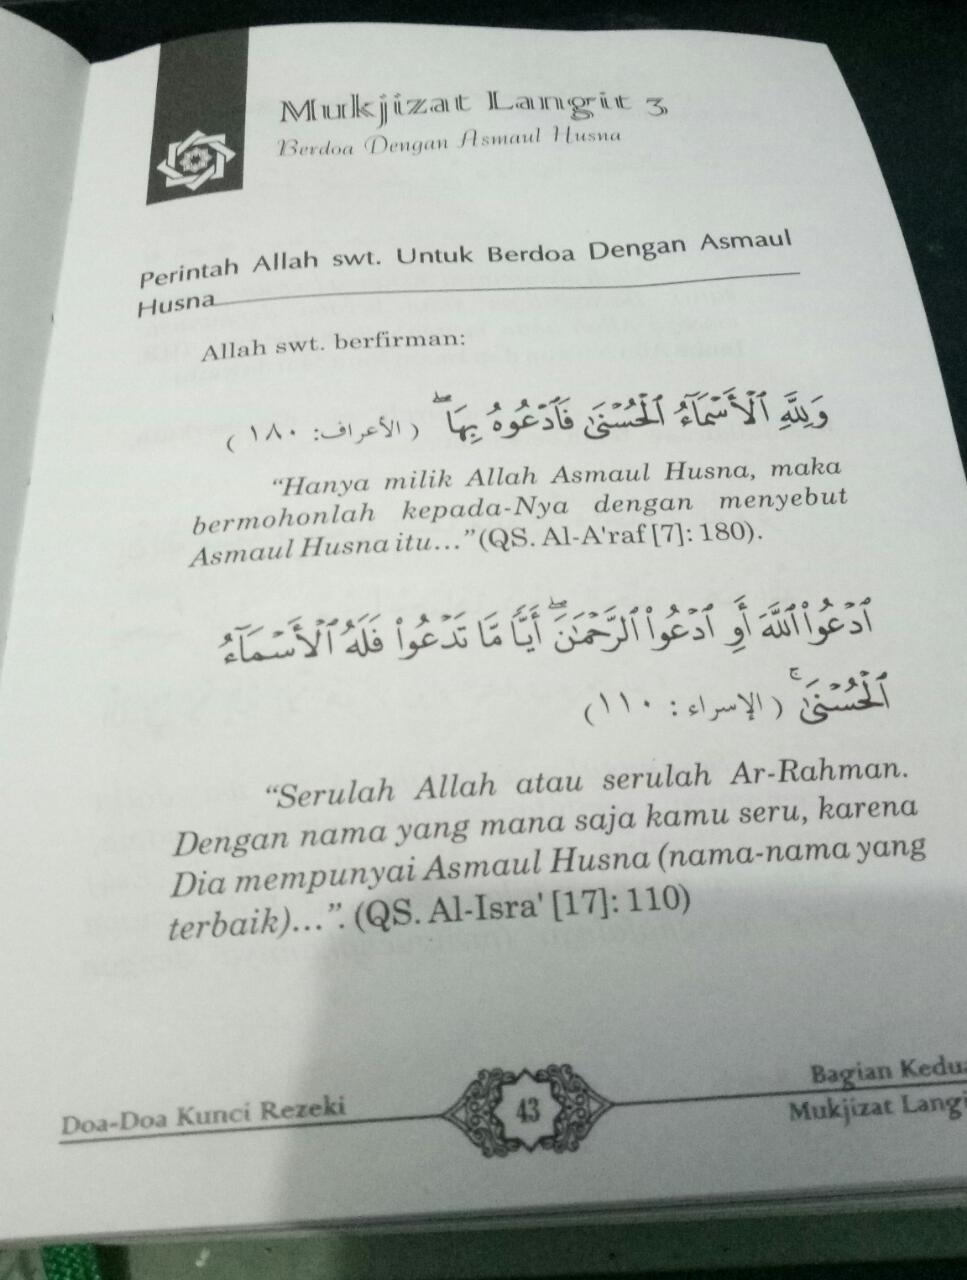 Mukjizat Langit 3
Berdoa Dengan Asmaul Husna
Perintah Allah swt. Untuk Berdoa Dengan Asmaul
Husna
Allah swt. berfirman:
وَلِلَّهِ ٱلْأَسْمَآءُ ٱلْحُسْنَىٰ فَٱدْعُوهُ بِهَا ۖ (الأعراف: ١٨٠)
“Hanya milik Allah Asmaul Husna, maka
bermohonlah kepada-Nya dengan menyebut
Asmaul Husna itu...” (QS. Al-A'raf [7]: 180).
ٱدْعُوا۟ ٱللَّهَ أَوِ ٱدْعُوا۟ ٱلرَّحْمَـٰنَ ۖ أَيًّا مَّا تَدْعُوا۟ فَلَهُ ٱلْأَسْمَآءُ
ٱلْحُسْنَىٰ ۚ (الإسراء: ١١٠)
“Serulah Allah atau serulah Ar-Rahman.
Dengan nama yang mana saja kamu seru, karena
Dia mempunyai Asmaul Husna (nama-nama yang
terbaik)...”. (QS. Al-Isra' [17]: 110)
Doa-Doa Kunci Rezeki
43
Bagian Kedua
Mukjizat Langi